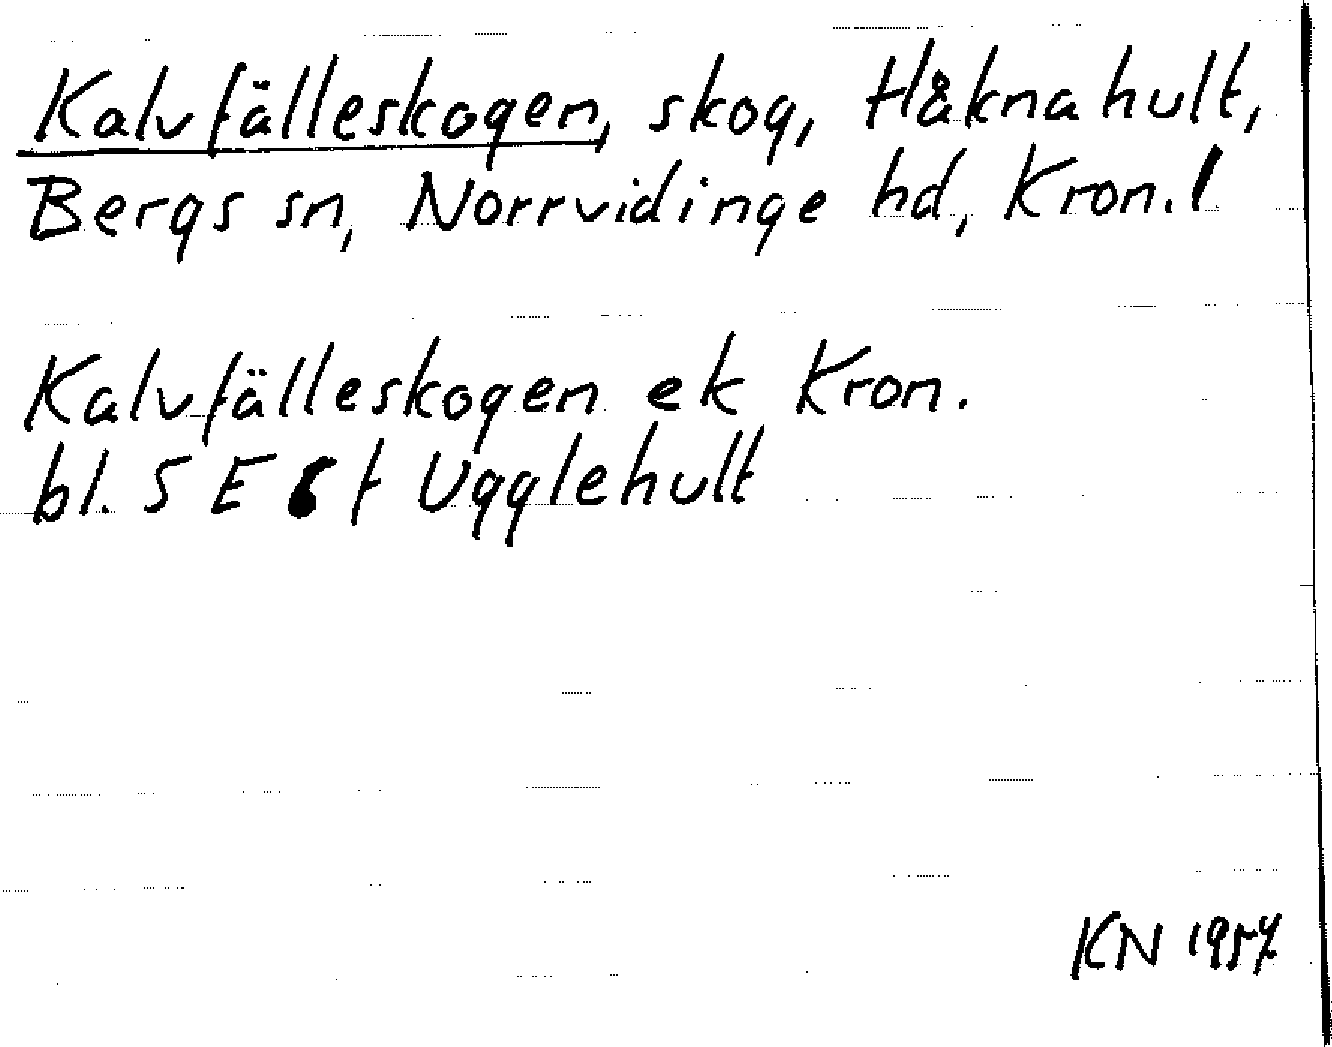 Kalvfälleskogen, skog, Håknahult,
Bergs sn, Norrvidinge hd, Kron.l
Kalvfälleskogen ek Kron.
bl. 5 E 8 f Ugglehult
KN 1957